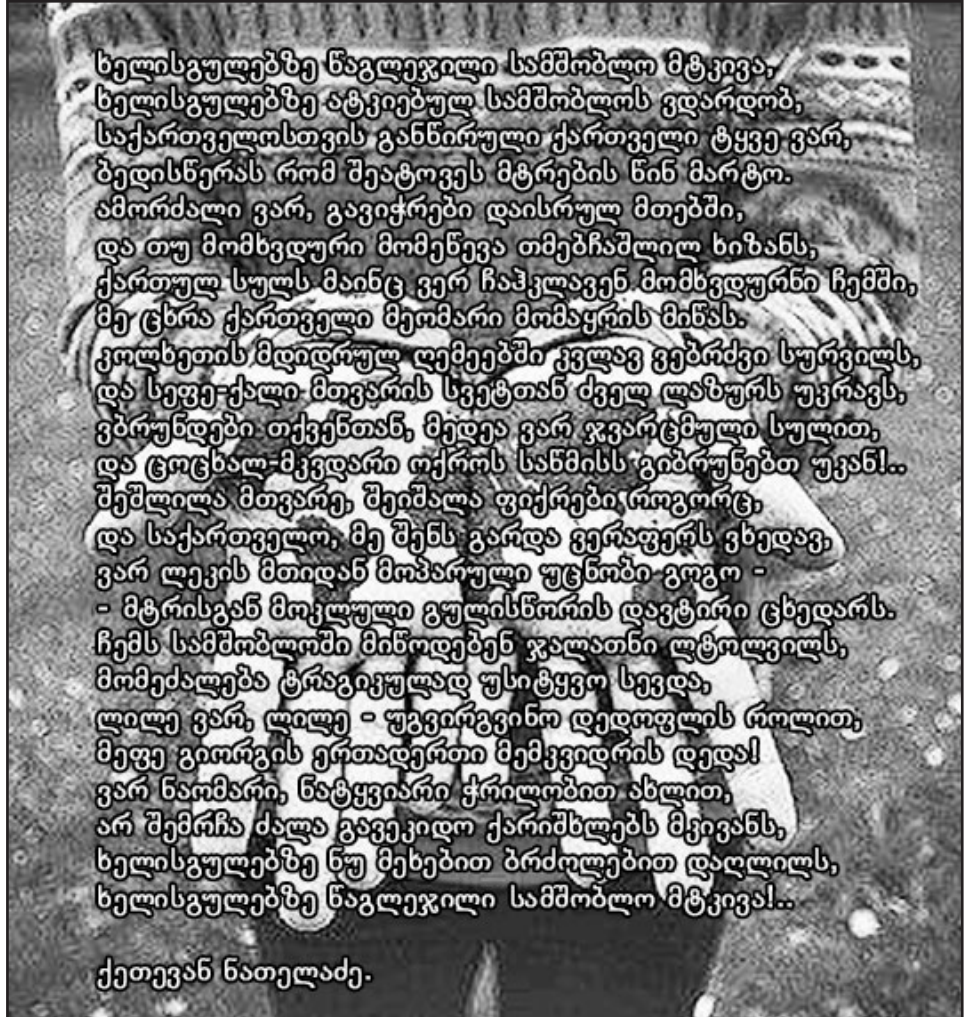 ხელისგულებზე წაგლეჯილი სამშობლო მტკივა,
ხელისგულებზე ატკიებულ სამშობლოს ვდარდობ,
საქართველოსთვის განწირული ქართველი ტყვე ვარ,
ბედისწერას რომ შეატოვეს მტრების წინ მარტო.
ამორძალი ვარ, გავიჭრები დაისრულ მთებში,
და თუ მომხვდური მომეწევა თმებჩაშლილ ხიზანს,
ქართულ სულს მაინც ვერ ჩაჰკლავენ მომხვდურნი ჩემში,
მე ცხრა ქართველი მეომარი მომაყრის მიწას.
კოლხეთის მდიდრულ ღემეებში კვლავ ვებრძვი სურვილს,
და სეფე-ქალი მთვარის სვეტთან ძველ ლაზურს უკრავს,
ვბრუნდები თქვენთან, მედეა ვარ ჯვარცმული სულით,
და ცოცხალ-მკვდარი ოქროს საწმისს გიბრუნებთ უკან!..
შეშლილა მთვარე, შეიშალა ფიქრები როგორც,
და საქართველო, მე შენს გარდა ვერაფერს ვხედავ,
ვარ ლეკის მთიდან მოპარული უცნობი გოგო -
- მტრისგან მოკლული გულისწორის დავტირი ცხედარს.
ჩემს სამშობლოში მიწოდებენ ჯალათნი ლტოლვილს,
მომეძალება ტრაგიკულად უსიტყვო სევდა,
ლილე ვარ, ლილე - უგვირგვინო დედოფლის როლით,
მეფე გიორგის ერთადერთი მემკვიდრის დედა!
ვარ ნაომარი, ნატყვიარი ჭრილობით ახლით,
არ შემრჩა ძალა გავეკიდო ქარიშხლებს მკივანს,
ხელისგულებზე ნუ მეხებით ბრძოლებით დაღლილს,
ხელისგულებზე წაგლეჯილი სამშობლო მტკივა!..
ქეთევან ნათელაძე.